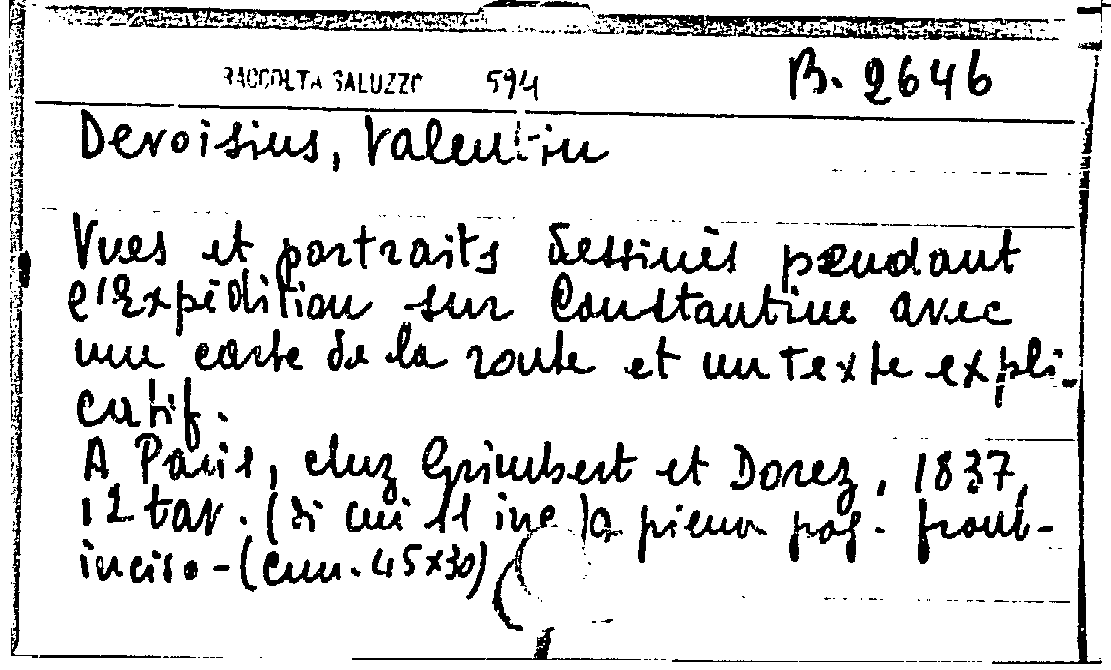 RACCOLTA SALUZZO 594 B. 2646
Devoisius, Valentin
Vues et portraits dessinés pendant
l'Expédition sur Constantine avec
une carte de la route et un texte expli-
catif.
A Paris, chez Grimbert et Dorez, 1837,
12 tav. (di cui 11 inc.) a piena pag. front-
inciso - (cm. 45x30)